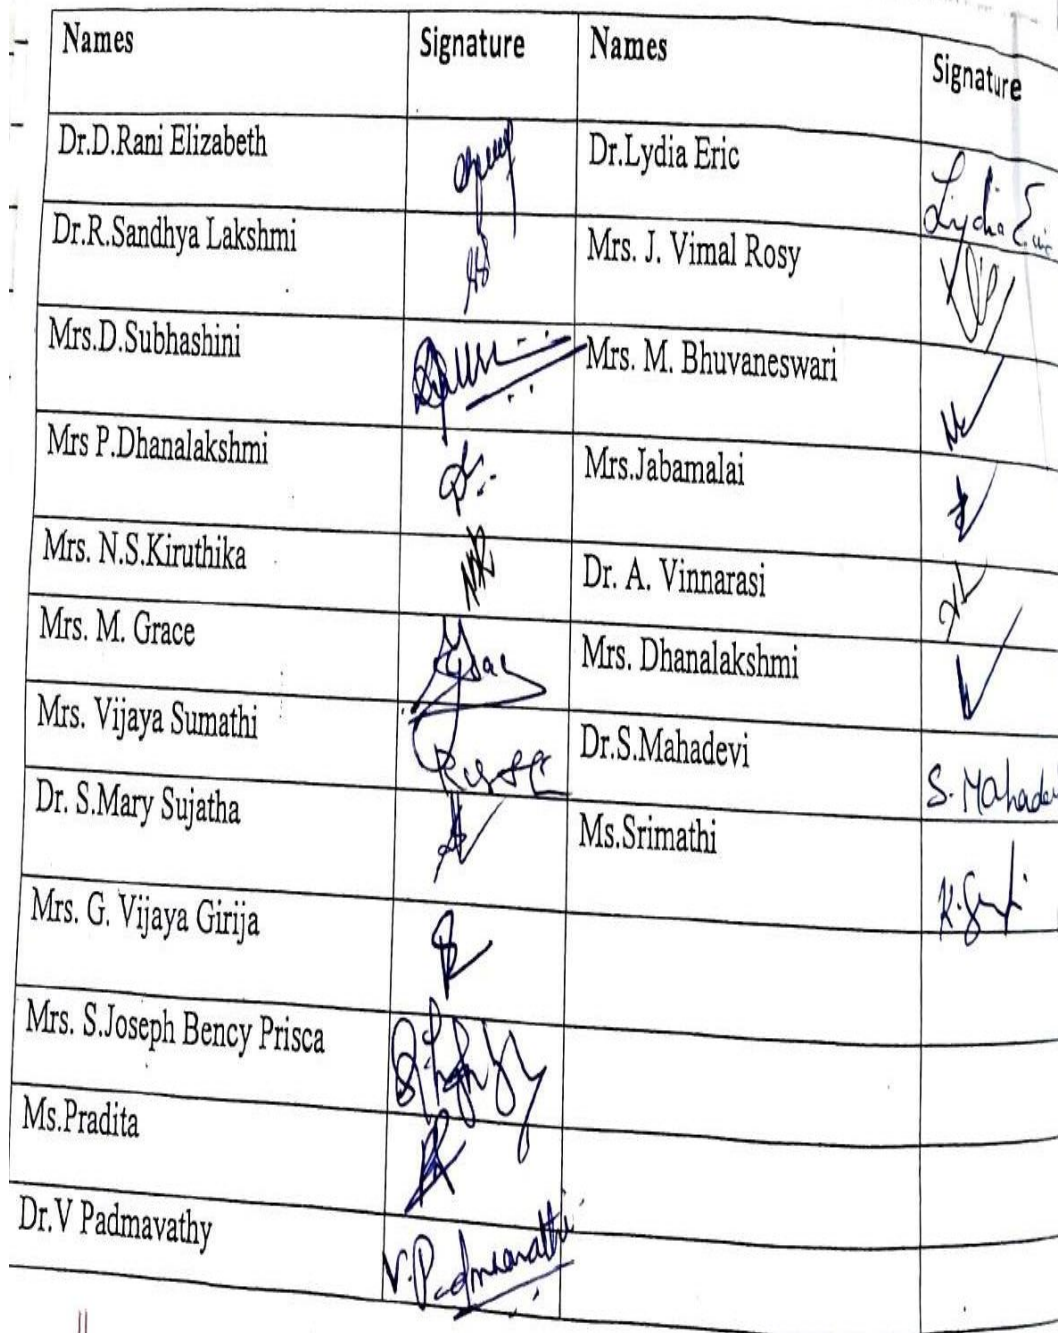 Names Signature Names Signature
Dr.D.Rani Elizabeth Dr.Lydia Eric Lydia Eric
Dr.R.Sandhya Lakshmi Mrs. J. Vimal Rosy
Mrs.D.Subhashini Mrs. M. Bhuvaneswari
Mrs P.Dhanalakshmi Mrs.Jabamalai
Mrs. N.S.Kiruthika Dr. A. Vinnarasi
Mrs. M. Grace Mrs. Dhanalakshmi
Mrs. Vijaya Sumathi Dr.S.Mahadevi S. Mahadevi
Dr. S.Mary Sujatha Ms.Srimathi
Mrs. G. Vijaya Girija
Mrs. S.Joseph Bency Prisca
Ms.Pradita
Dr.V Padmavathy V.Padmavathi